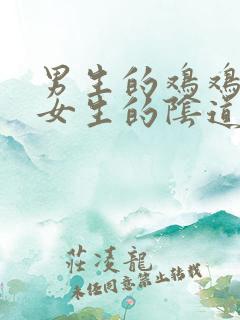 男生的鸡鸡
女生的陰道
莊凌龍
未经同意禁止转载